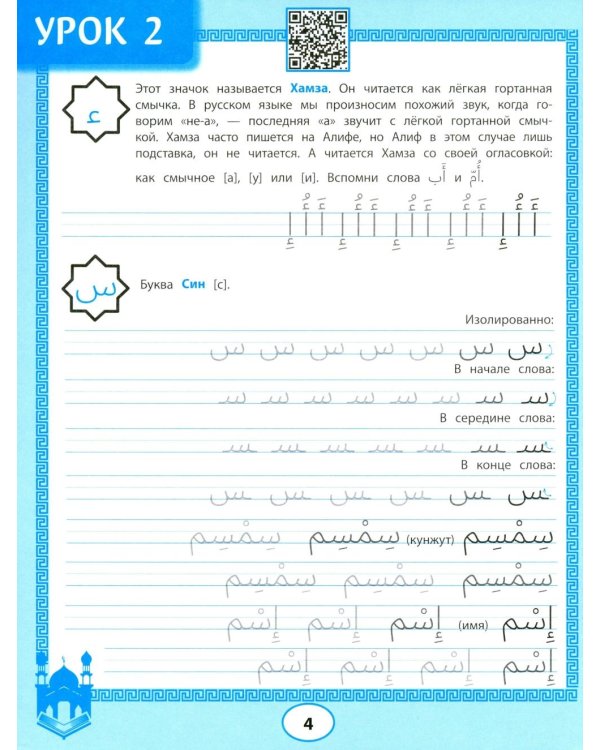 УРОК 2
ء
Этот значок называется Хамза. Он читается как лёгкая гортанная
смычка. В русском языке мы произносим похожий звук, когда го-
ворим «не-а», — последняя «а» звучит с лёгкой гортанной смыч-
кой. Хамза часто пишется на Алифе, но Алиф в этом случае лишь
подставка, он не читается. А читается Хамза со своей огласовкой:
как смычное [а], [у] или [и]. Вспомни слова أَب и أُمّ.
أَ أُ إِ أَ أُ إِ أَ أُ إِ أَ أُ إِ أَ أُ إِ
س
Буква Син [с].
Изолированно:
س س س س س س س
В начале слова:
سـ سـ سـ سـ سـ سـ سـ سـ
В середине слова:
ـسـ ـسـ ـسـ ـسـ ـسـ ـسـ ـسـ
В конце слова:
ـس ـس ـس ـس ـس ـس
سِمْسِم (кунжут) سِمْسِم سِمْسِم
سِمْسِم سِمْسِم سِمْسِم سِمْسِم
إِسْم (имя) إِسْم إِسْم إِسْم
إِسْم إِسْم إِسْم إِسْم
4